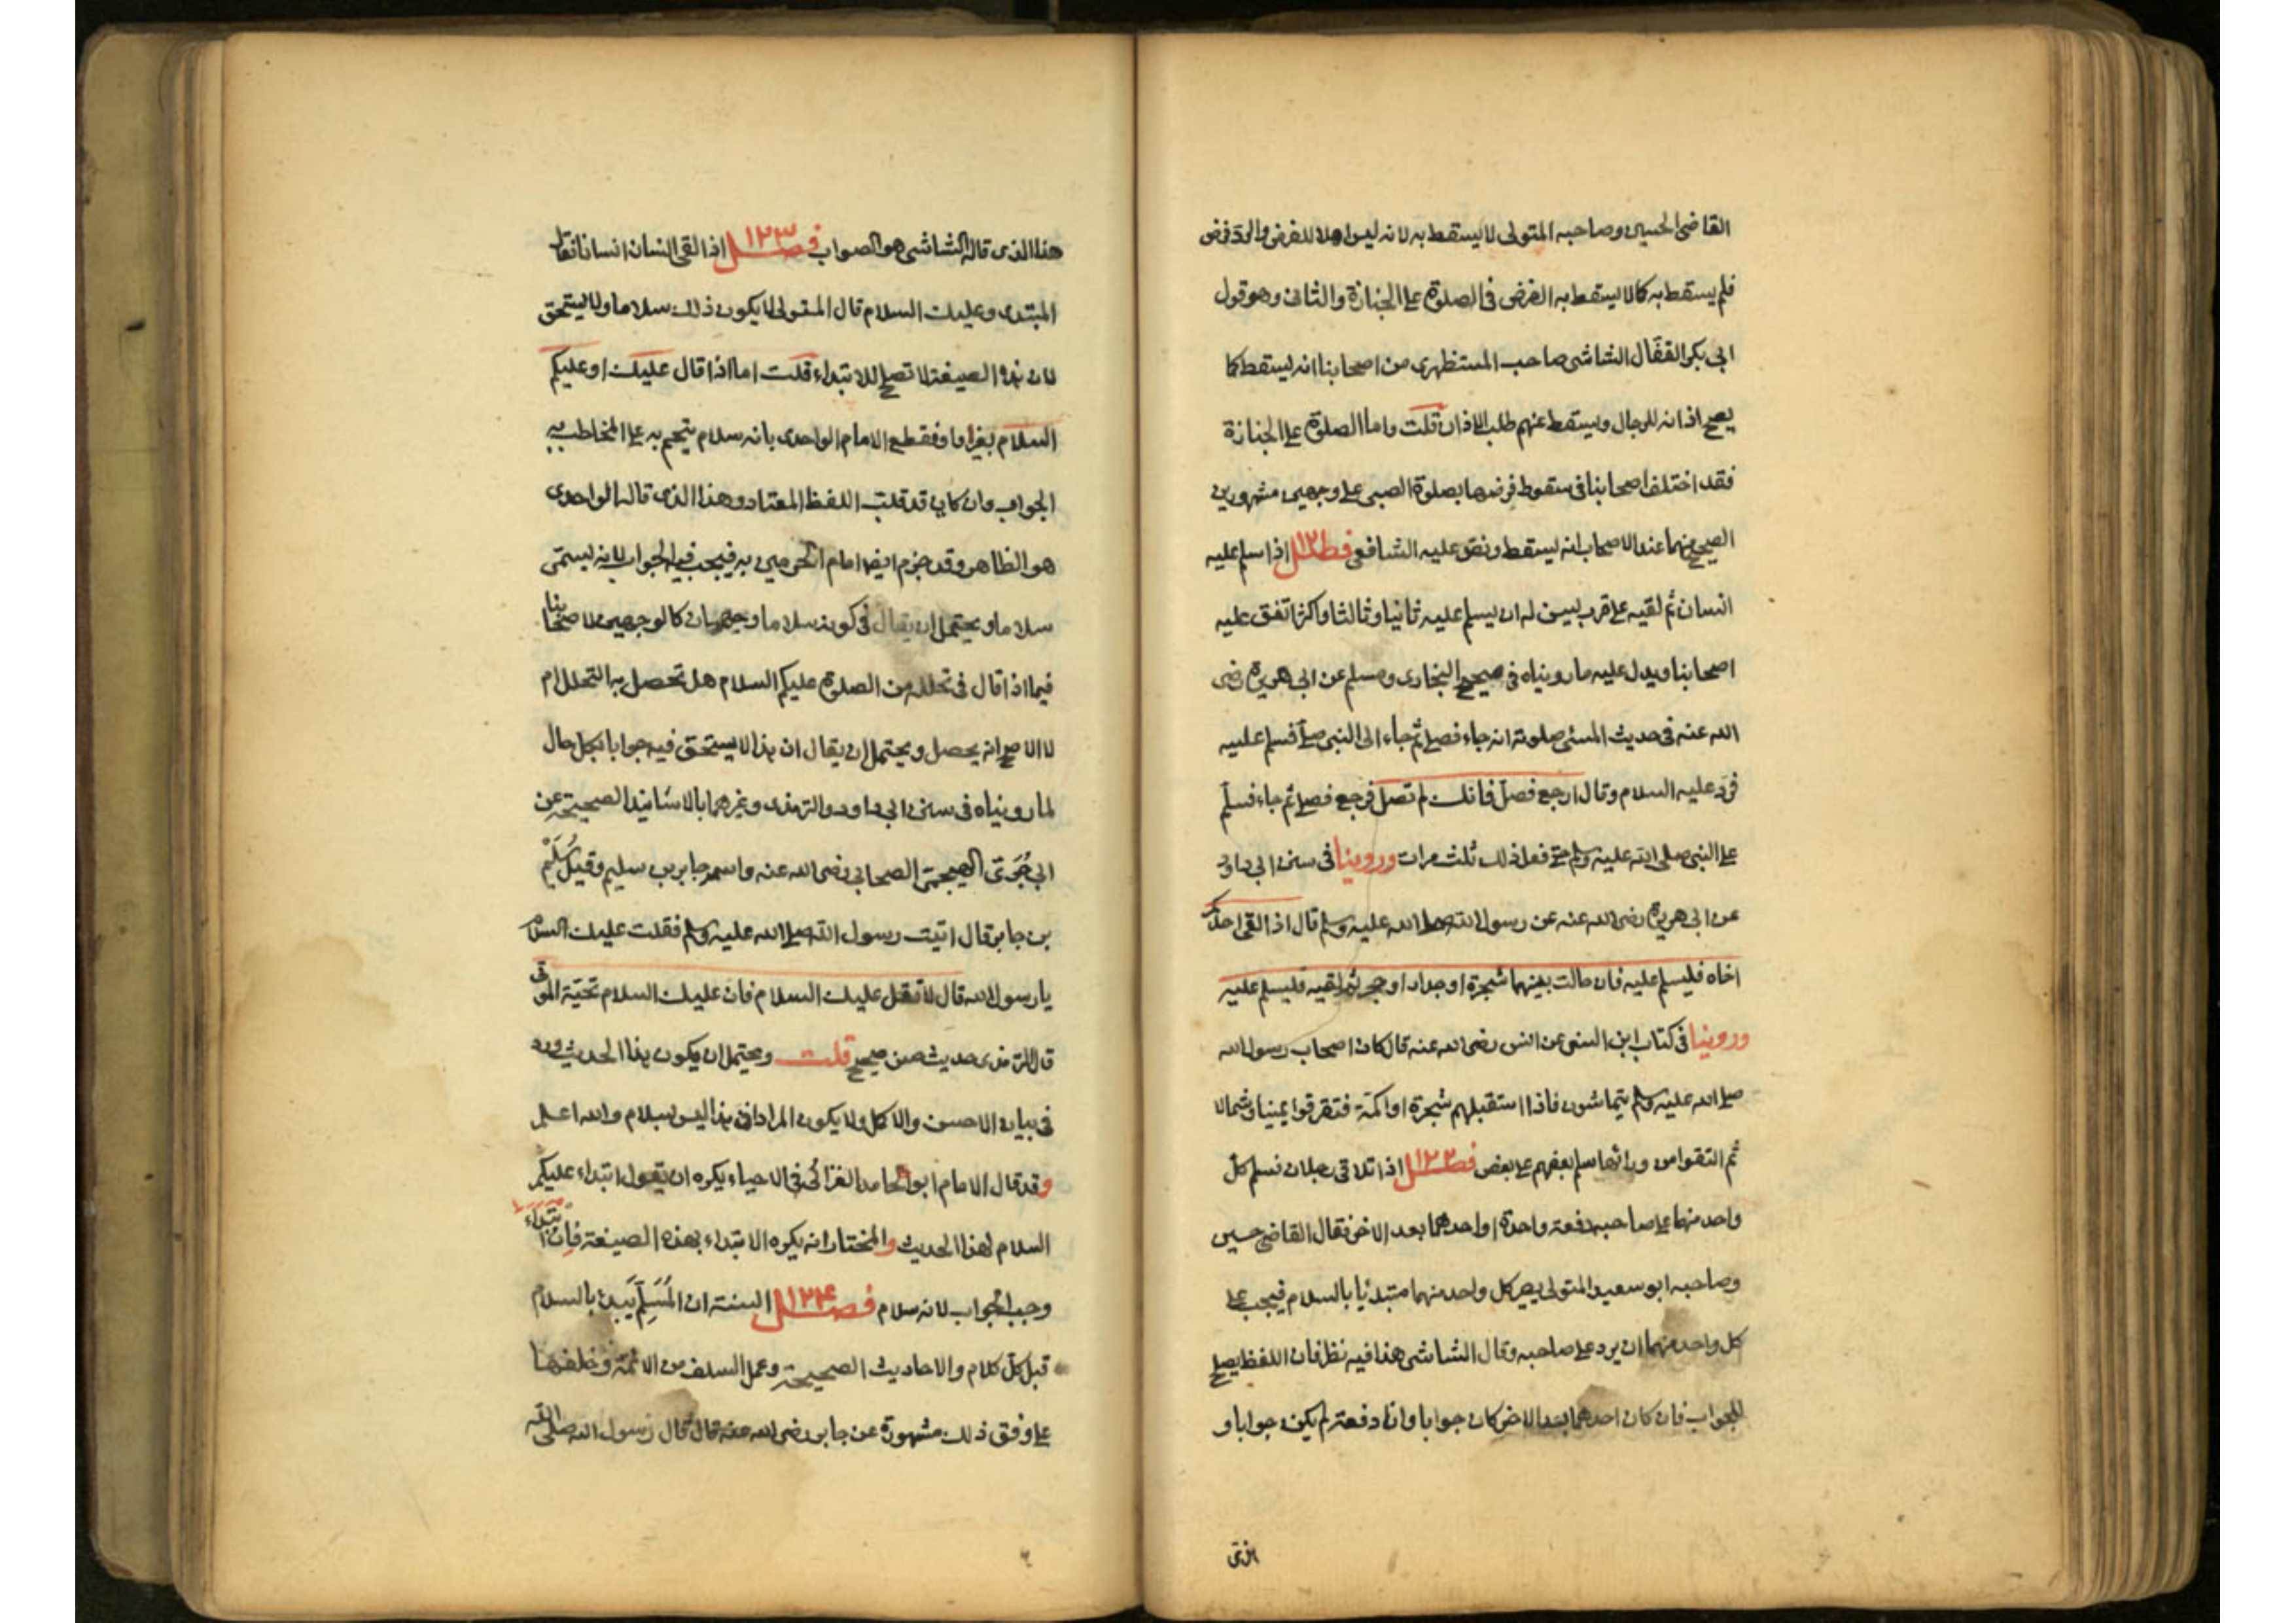 القاضى الحسين وصاحبه المتولى لا يسقط به لانه ليس اهلا للفرض والرد فرض
فلم يسقط به كما لا يسقط به الفرض فى الصلوة على الجنازة والثانى وهو قول
ابى بكر القفّال الشاشى صاحب المستظهرى من اصحابنا انه يسقط كما
يصح اذانه للرجال ويسقط عنهم طلب الاذان قلت واما الصلوة على الجنازة
فقد اختلف اصحابنا فى سقوط فرضها بصلوة الصبى على وجهين مشهورين
الصحيح منهما عند الاصحاب انه يسقط ونص عليه الشافعى فصل ١٢١ اذا سلم عليه
انسان ثم لقيه على قرب يسن له ان يسلم عليه ثانيا وثالثا واكثر اتفق عليه
اصحابنا ويدل عليه ما رويناه فى صحيح البخارى ومسلم عن ابى هريرة رضى
الله عنه فى حديث المسئ صلوته انه جاء فصلى ثم جاء الى النبى صلم فسلم عليه
فرد عليه السلام وقال ارجع فصل فانك لم تصل فرجع فصلى ثم جاء فسلم
على النبى صلى الله عليه وسلم حتى فعل ذلك ثلث مرات وروينا فى سنن ابى داود
عن ابى هريرة رضى الله عنه عن رسول الله صلى الله عليه وسلم قال اذا لقى احدكم
اخاه فليسلم عليه فان حالت بينهما شجرة او جدار او حجر ثم لقيه فليسلم عليه
وروينا فى كتاب ابن السنى عن انس رضى الله عنه قال كان اصحاب رسول الله
صلى الله عليه وسلم يتماشون فاذا استقبلهم شجرة او اكمة فتفرقوا يمينا وشمالا
ثم التقوا من ورائها سلم بعضهم على بعض فصل ١٢٢ اذا تلاقى رجلان فسلم كل
واحد منهما على صاحبه دفعة واحدة او احدهما بعد الاخر فقال القاضى حسين
وصاحبه ابو سعيد المتولى يصير كل واحد منهما مبتديا بالسلام فيجب على
كل واحد منهما ان يرد على صاحبه وقال الشاشى هذا فيه نظر فان اللفظ يصلح
للجواب فان كان احدهما بعد الاخر كان جوابا وان دفعة لم يكن جوابا و
هذا الذى قاله الشاشى هو الصواب فصل ١٢٣ اذا لقى انسان انسانا فقال
المبتدى وعليك السلام قال المتولى لا يكون ذلك سلاما ولا يستحق
لان هذه الصيغة لا تصلح للابتداء قلت اما اذا قال عليك او عليكم
السلام بغير واو فقطع الامام الواحدى بانه سلام يتحتم به على المخاطب به
الجواب وان كان قد قلب اللفظ المعتاد وهذا الذى قاله الواحدى
هو الظاهر وقد جزم ايضا امام الحرمين به فيجب فيه الجواب لانه يسمّى
سلاما ويحتمل ان يقال فى كونه سلاما وجهان كالوجهين لاصحابنا
فيما اذا قال فى تحلله من الصلوة عليكم السلام هل تحصل به التحلل ام
لا الاصح انه يحصل ويحتمل ان يقال ان هذا لا يستحق فيه جوابا بكل حال
لما رويناه فى سنن ابى داود والترمذى وغيرهما بالاسانيد الصحيحة عن
ابى جُرَىّ الهجيمى الصحابى رضى الله عنه واسمه جابر بن سليم وقيل سُلَيْم
بن جابر قال اتيت رسول الله صلى الله عليه وسلم فقلت عليك السلام
يا رسول الله قال لا تقل عليك السلام فان عليك السلام تحيّة الموتى
قال الترمذى حديث حسن صحيح قلت ويحتمل ان يكون هذا الحديث ورد
فى بيان الاحسن والاكمل ولا يكون المراد ان هذا ليس بسلام والله اعلم
وقد قال الامام ابو الحامد الغزالى فى الاحياء يكره ان يقول ابتداء عليكم
السلام لهذا الحديث والمختار انه يكره الابتداء بهذه الصيغة فان ابتداء
وجب الجواب لانه سلام فصل ١٢٤ السنة ان المُسَلِّم يَبدئ بالسلام
قبل كل كلام والاحاديث الصحيحة وعمل السلف من الائمة وخلفها
على وفق ذلك مشهورة عن جابر رضى الله عنه قال قال رسول الله صلى الله